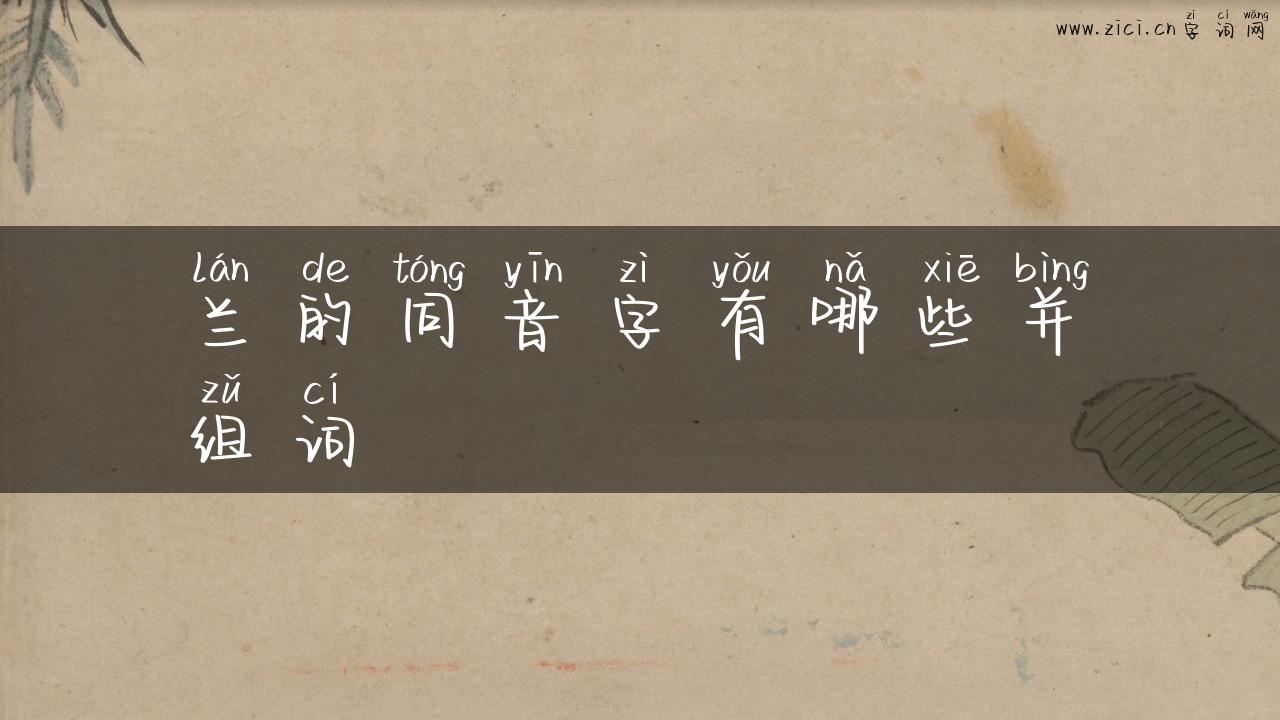 zì cí wǎng
www.zici.cn 字词网
lán de tóng yīn zì yǒu nǎ xiē bìng
兰的同音字有哪些并
zǔ cí
组词